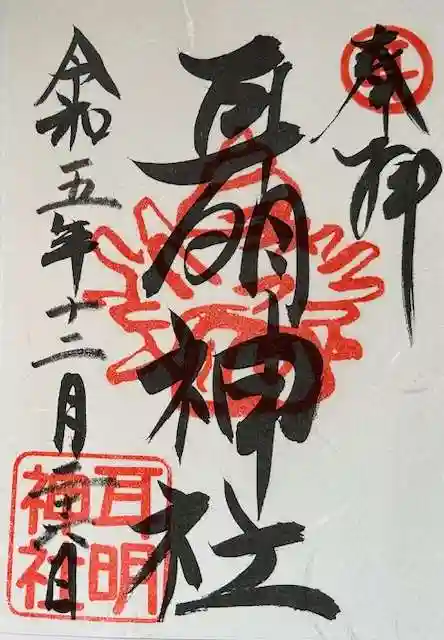 奉拝
耳明神社
令和五年十二月 日
耳明
神社